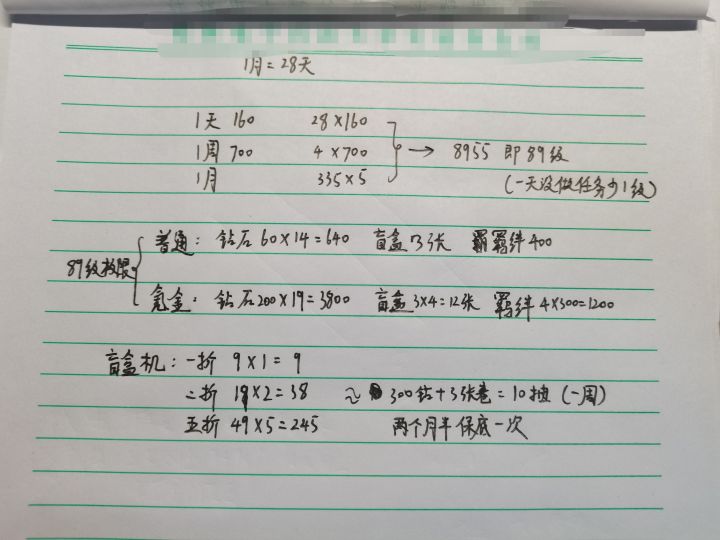 1月=28天
1天 160 28×160
1周 700 4×700 → 8955 即89级
1月 335×5 (一天没做任务少1级)
89级极限
普通: 钻石60×14=640 盲盒3张 羁绊400
氪金: 钻石200×19=3800 盲盒3×4=12张 羁绊4×300=1200
盲盒机: 一折 9×1=9
二折 19×2=38 ≈ 300钻+3张卷=10抽 (一周)
五折 49×5=245 两个月半保底一次